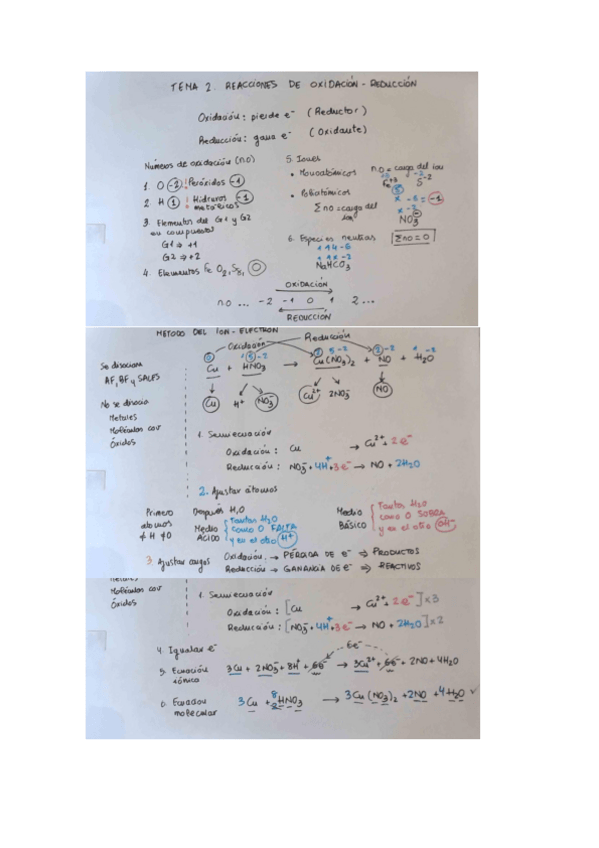 TEMA 2. REACCIONES DE OXIDACIÓN - REDUCCIÓN
Oxidación: pierde e⁻ (Reductor)
Reducción: gana e⁻ (Oxidante)
Números de oxidación (n.o)
1. O (-2) ! Peróxidos (-1)
2. H (1) ! Hidruros metálicos (-1)
3. Elementos del G1 y G2
en compuestos
G1 ⇒ +1
G2 ⇒ +2
4. Elementos Fe O₂, S₈, (0)
5. Iones
• Monoatómicos n.o = carga del ion
Fe⁺³ S⁻²
• Poliatómicos
Σ no = carga del ion
x - 6 = -1
x -2
NO₃⁻
6. Especies neutras Σno = 0
+1+4-6
+1 +1 x -2
NaHCO₃
OXIDACIÓN
n.o ... -2 -1 0 1 2...
REDUCCIÓN
MÉTODO DEL ION - ELECTRÓN
Oxidación Reducción
Cu + HNO₃ → Cu(NO₃)₂ + NO + H₂O
Cu H⁺ NO₃⁻ Cu²⁺ 2NO₃⁻ NO
Se disocian
AF, BF y SALES
No se disocia
Metales
Moléculas cov
Óxidos
1. Semiecuación
Oxidación: Cu → Cu²⁺ + 2e⁻
Reducción: NO₃⁻ + 4H⁺ + 3e⁻ → NO + 2H₂O
2. Ajustar átomos
Primero átomos ≠ H ≠ O
Después H, O
Medio ÁCIDO
Tantas H₂O
como O FALTA
y en el otro H⁺
Medio Básico
Tantas H₂O
como O SOBRA
y en el otro OH⁻
3. Ajustar cargas
Oxidación → PÉRDIDA DE e⁻ ⇒ PRODUCTOS
Reducción → GANANCIA DE e⁻ ⇒ REACTIVOS
Metales
Moléculas cov
Óxidos
1. Semiecuación
Oxidación: [Cu → Cu²⁺ + 2e⁻] x3
Reducción: [NO₃⁻ + 4H⁺ + 3e⁻ → NO + 2H₂O] x2
4. Igualar e⁻
6e⁻
5. Ecuación iónica
3Cu + 2NO₃⁻ + 8H⁺ + 6e⁻ → 3Cu²⁺ + 6e⁻ + 2NO + 4H₂O
6. Ecuación molecular
3Cu + 8HNO₃ → 3Cu(NO₃)₂ + 2NO + 4H₂O ✓